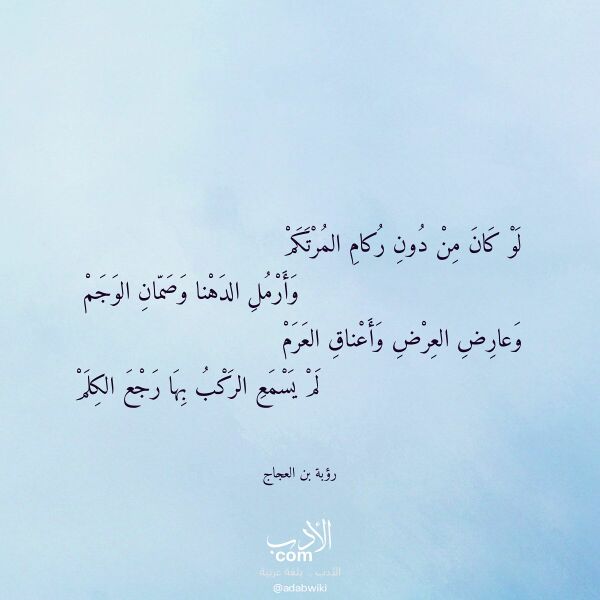 لَوْ كَانَ مِنْ دُونِ رُكامِ المُرْتَكَمْ
وَأَرْمُلِ الدَهْنا وَصَمّانِ الوَجَمْ
وَعارِضِ العِرْضِ وَأَعْناقِ العَرَمْ
لَمْ يَسْمَعِ الرَكْبُ بِهَا رَجْعَ الكِلَمْ
رؤبة بن العجاج
الأدب
com
الأدب .. بلغة عربية
@adabwiki